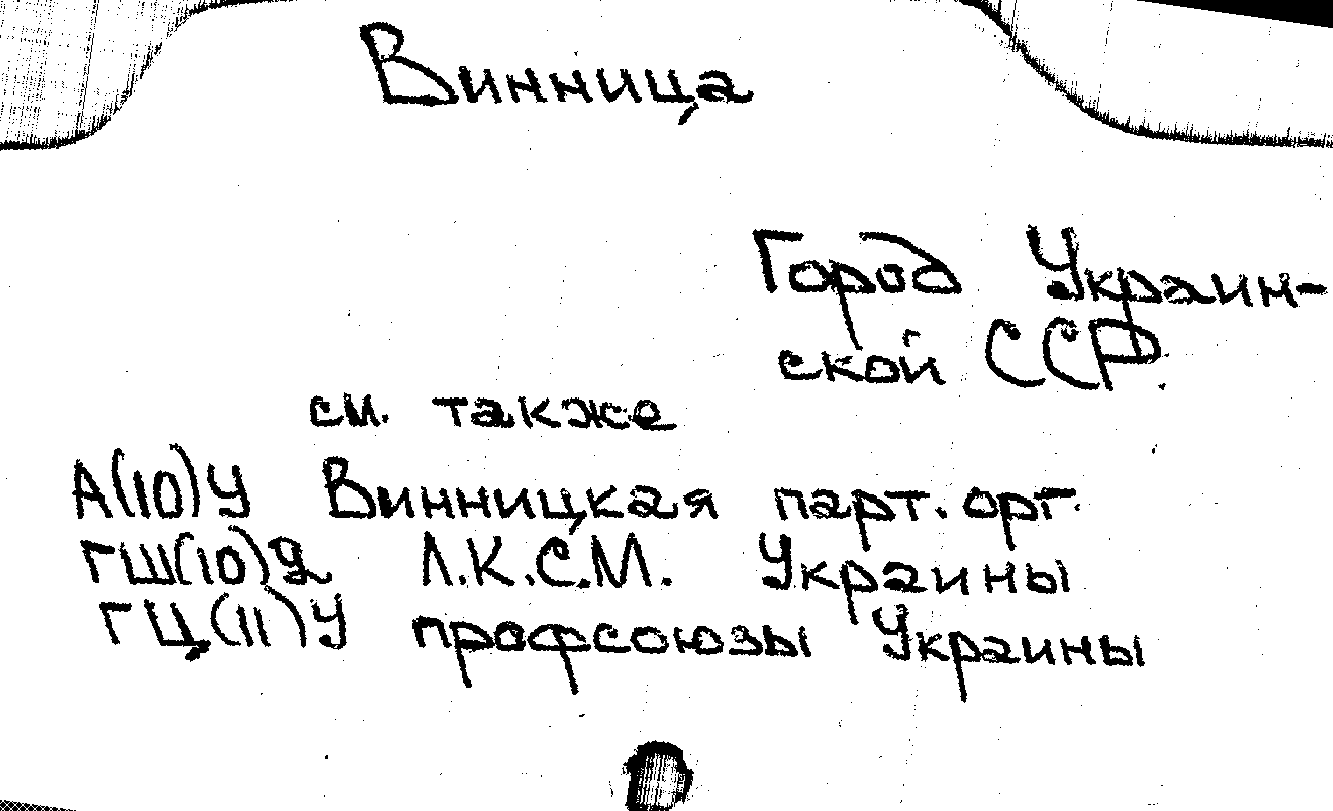 Винница
Город Украин-
ской ССР.
см. также
А(10)У Винницкая парт. орг.
ГШ(10)Я Л.К.С.М. Украины
ГЦ(11)У профсоюзы Украины